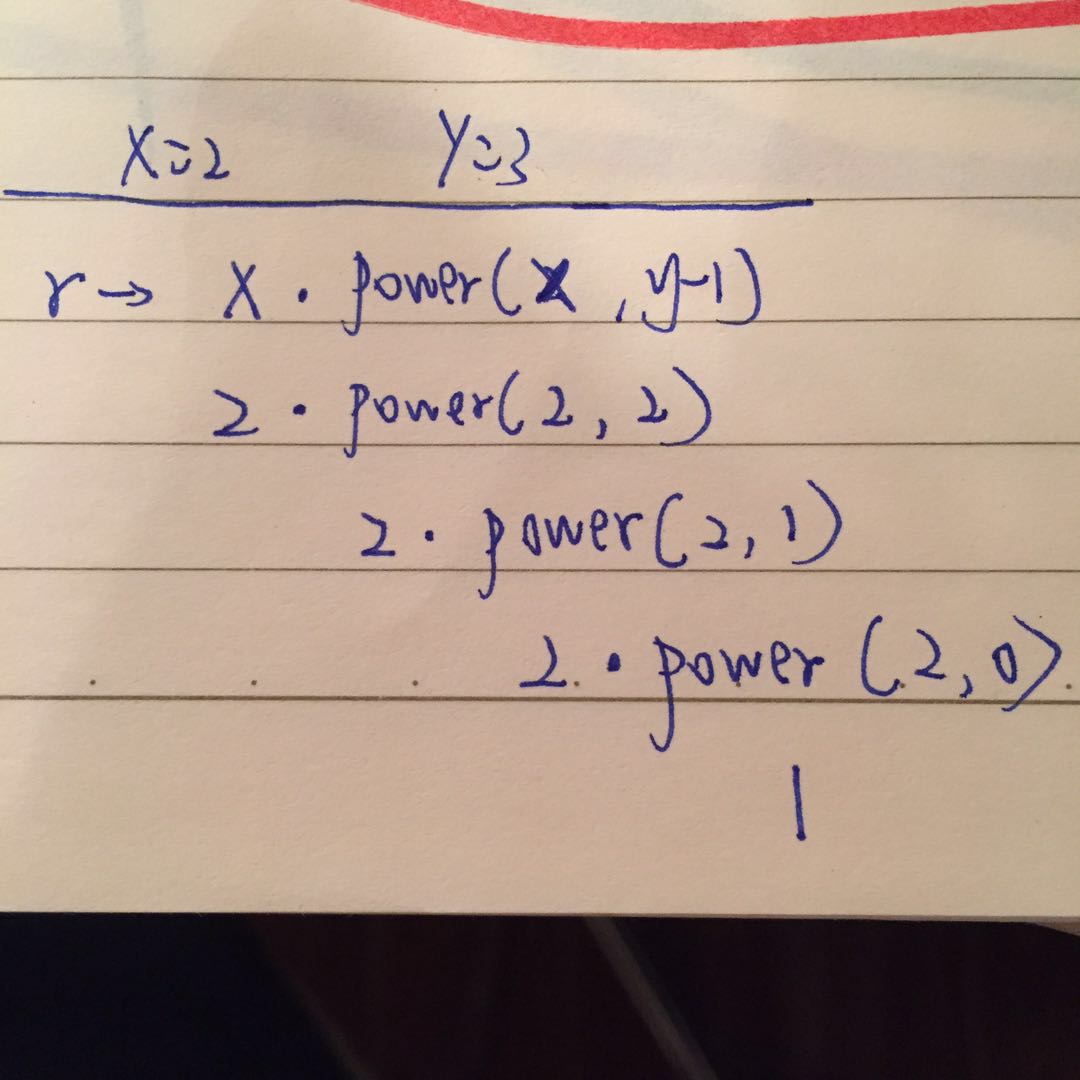 X=2 Y=3
r→ X · power(X, y-1)
2 · power(2, 2)
2 · power(2, 1)
2 · power (2, 0)
1